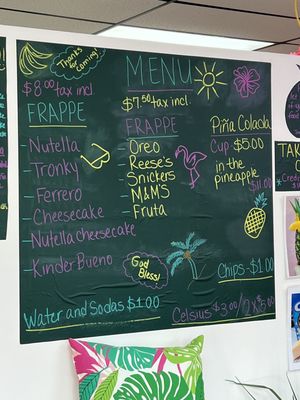 Thanks
for
coming!
MENU
$8.00 tax incl
FRAPPE
- Nutella
- Tronky
- Ferrero
- Cheesecake
- Nutella cheesecake
- Kinder Bueno
$7.50 tax incl.
FRAPPE
- Oreo
- Reese's
- Snickers
- M&M'S
- Fruta
Piña Colada
Cup $5.00
in the
pineapple
$11.00
God
Bless!
Chips-$1.00
Water and Sodas $1.00
Celsius $3.00/2x$5.00
TAKE